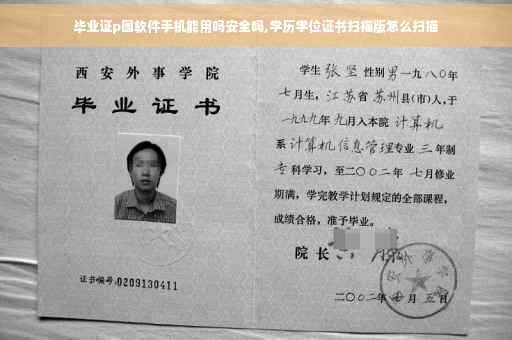 毕业证p图软件手机能用吗安全吗,学历学位证书扫描版怎么扫描
西安外事学院
毕业证书
证书编号:0209130411
学生 张坚 性别 男 一九八〇年
七月生,江苏省 苏州县(市)人,于
一九九九年 九月入本院 计算机
系 计算机信息管理专业 三 年制
专科学习,至二〇〇二年 七月修业
期满,学完教学计划规定的全部课程,
成绩合格,准予毕业。
院长
二〇〇二年 月 五日